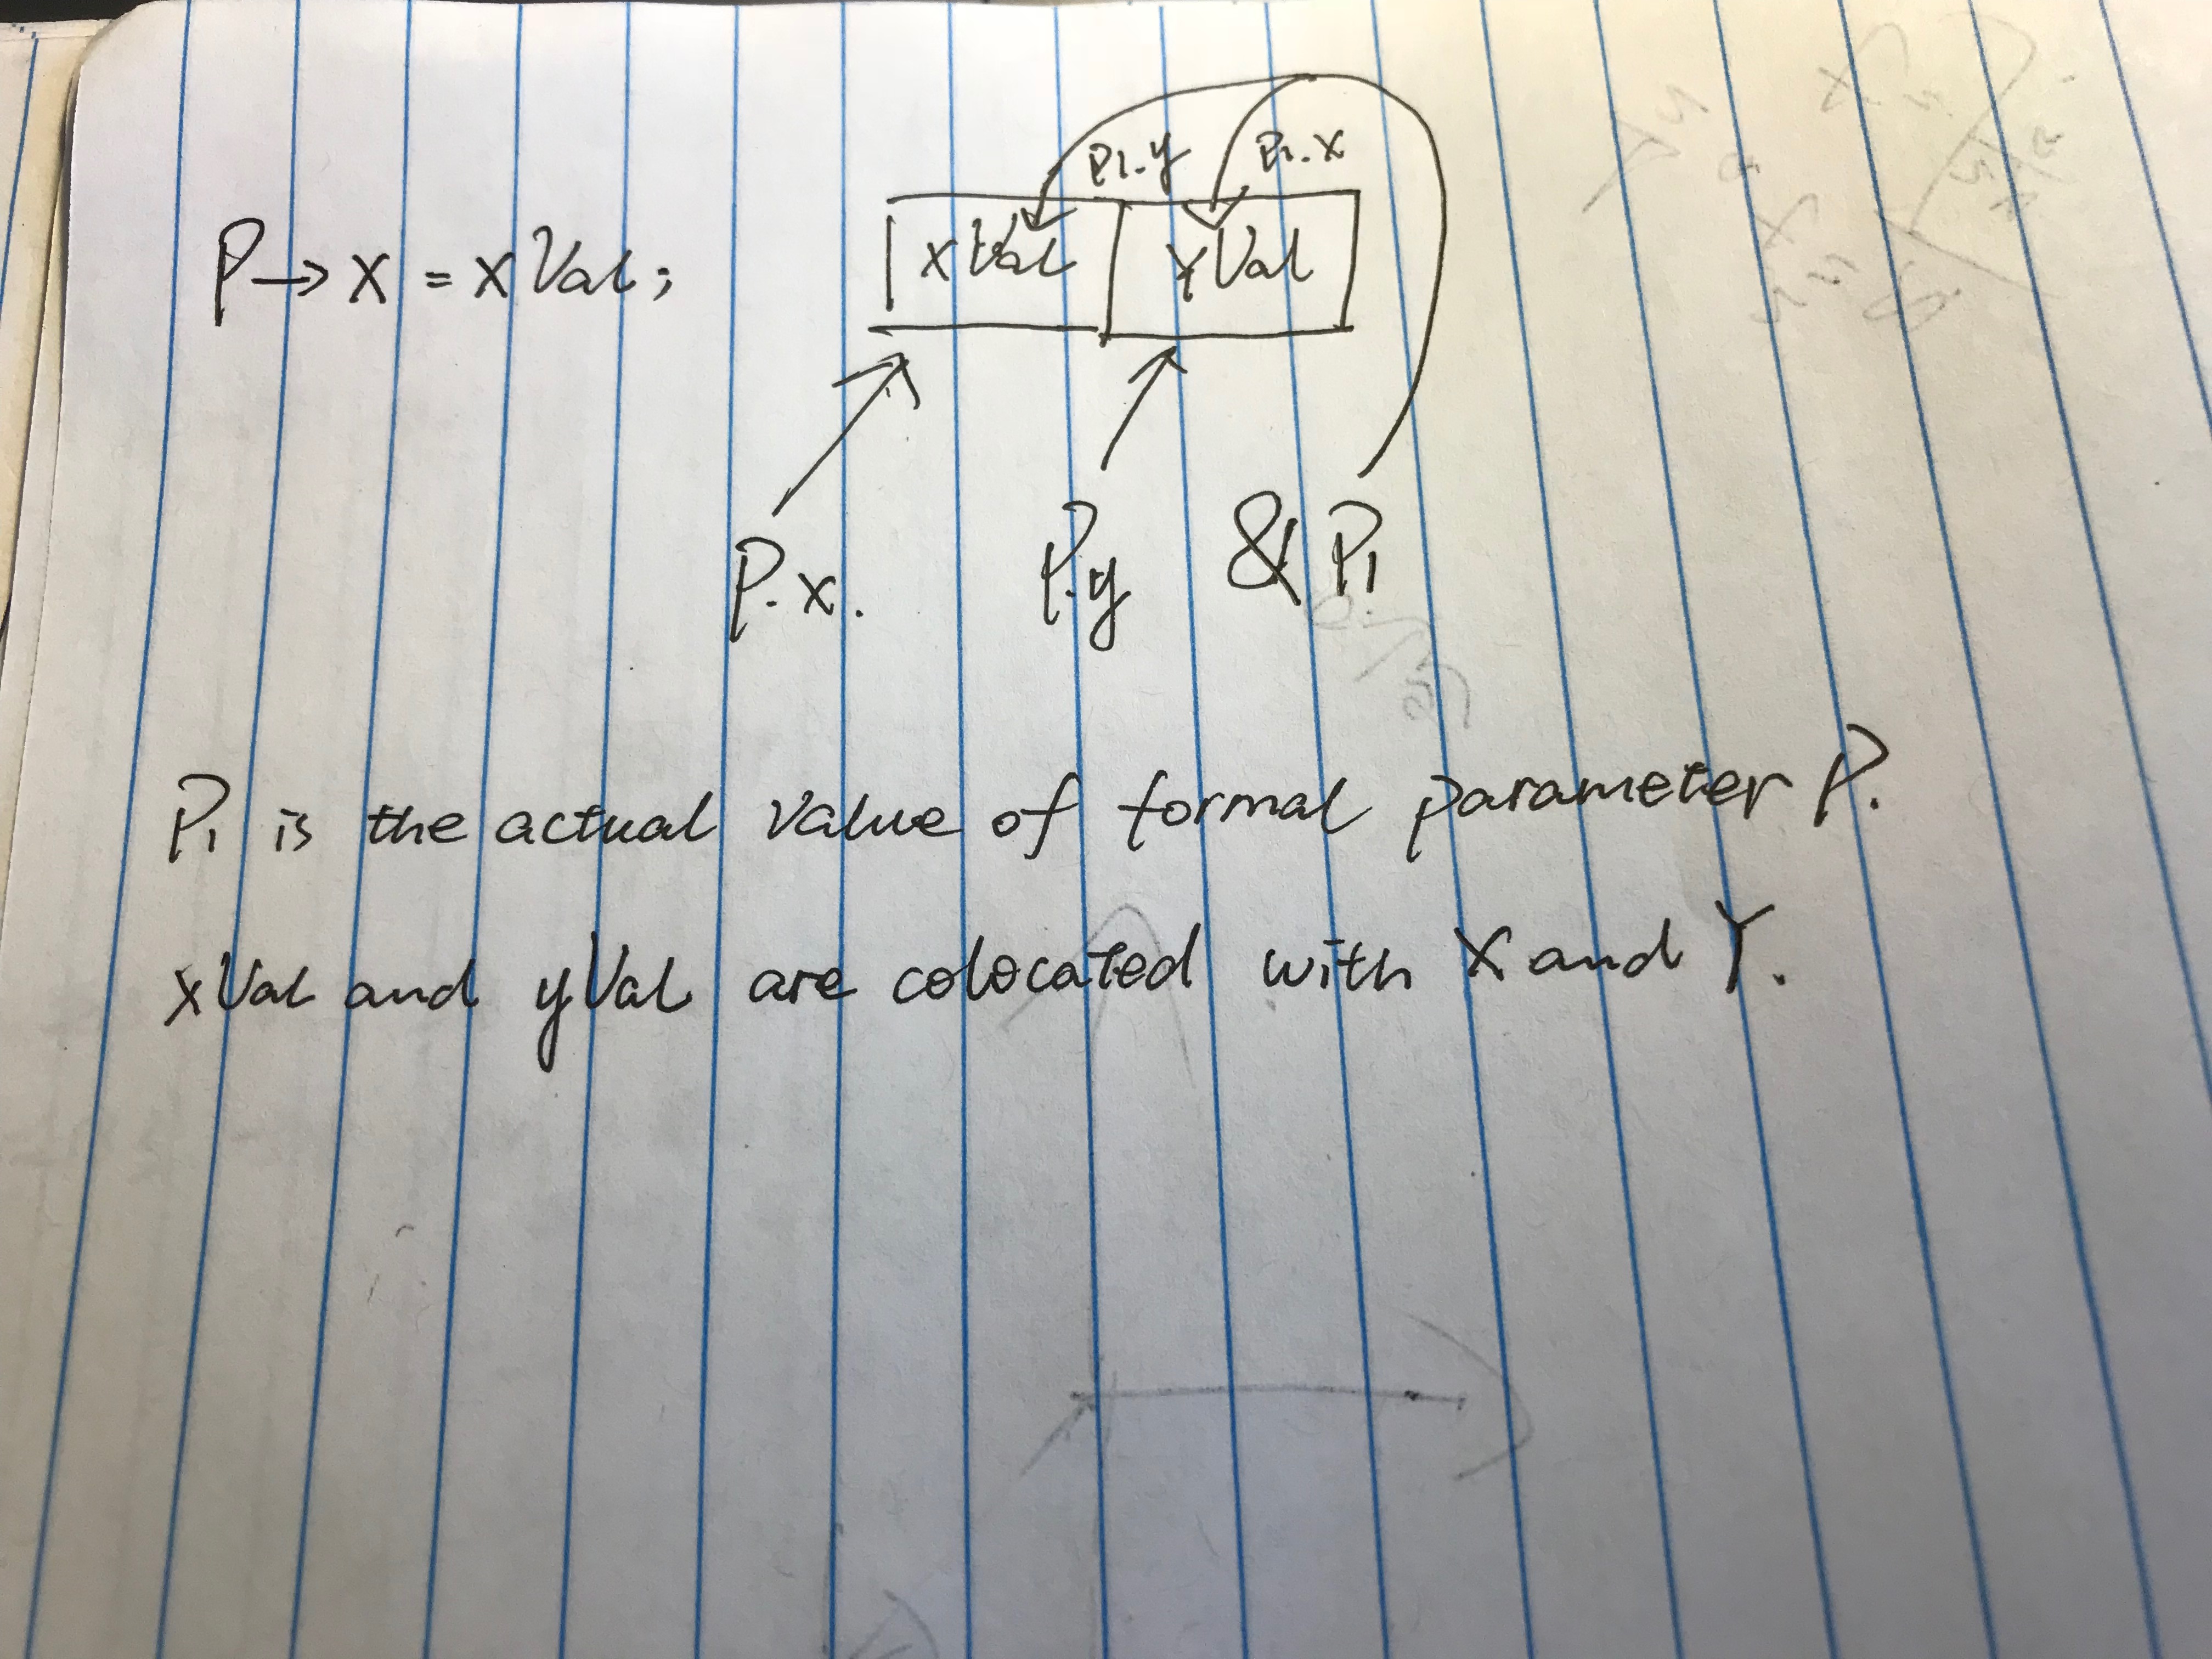 P1.y P1.x
P→x = xVal;
xVal yVal
P.x. P.y &P1
P1 is the actual value of formal parameter P.
xVal and yVal are colocated with X and Y.